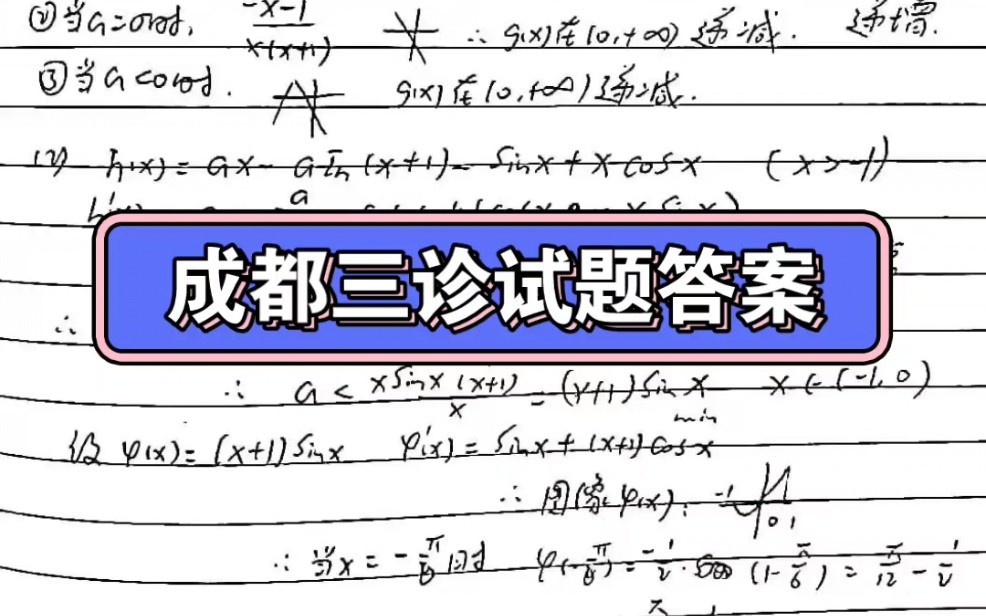 ②当a=0时, -x-1/x(x+1) ∴ g(x)在(0,+∞)递减. 递增.
③当a<0时. g(x)在(0,+∞)递减.
(2) h(x)=ax-aln(x+1)-sinx+xcosx (x>-1)
成都三诊试题答案
∴
∴ a< xsinx(x+1)/x =(x+1)sinx min x∈(-1,0)
设φ(x)=(x+1)sinx φ'(x)=sinx+(x+1)cosx
∴图象φ(x): -1 0 1
∴当x=-π/6时 φ(-π/6)=-1/2·(1-π/6)=π/12-1/2